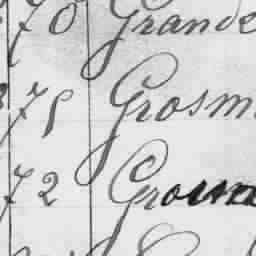 70 Grande
71 Grosm
72 Groum